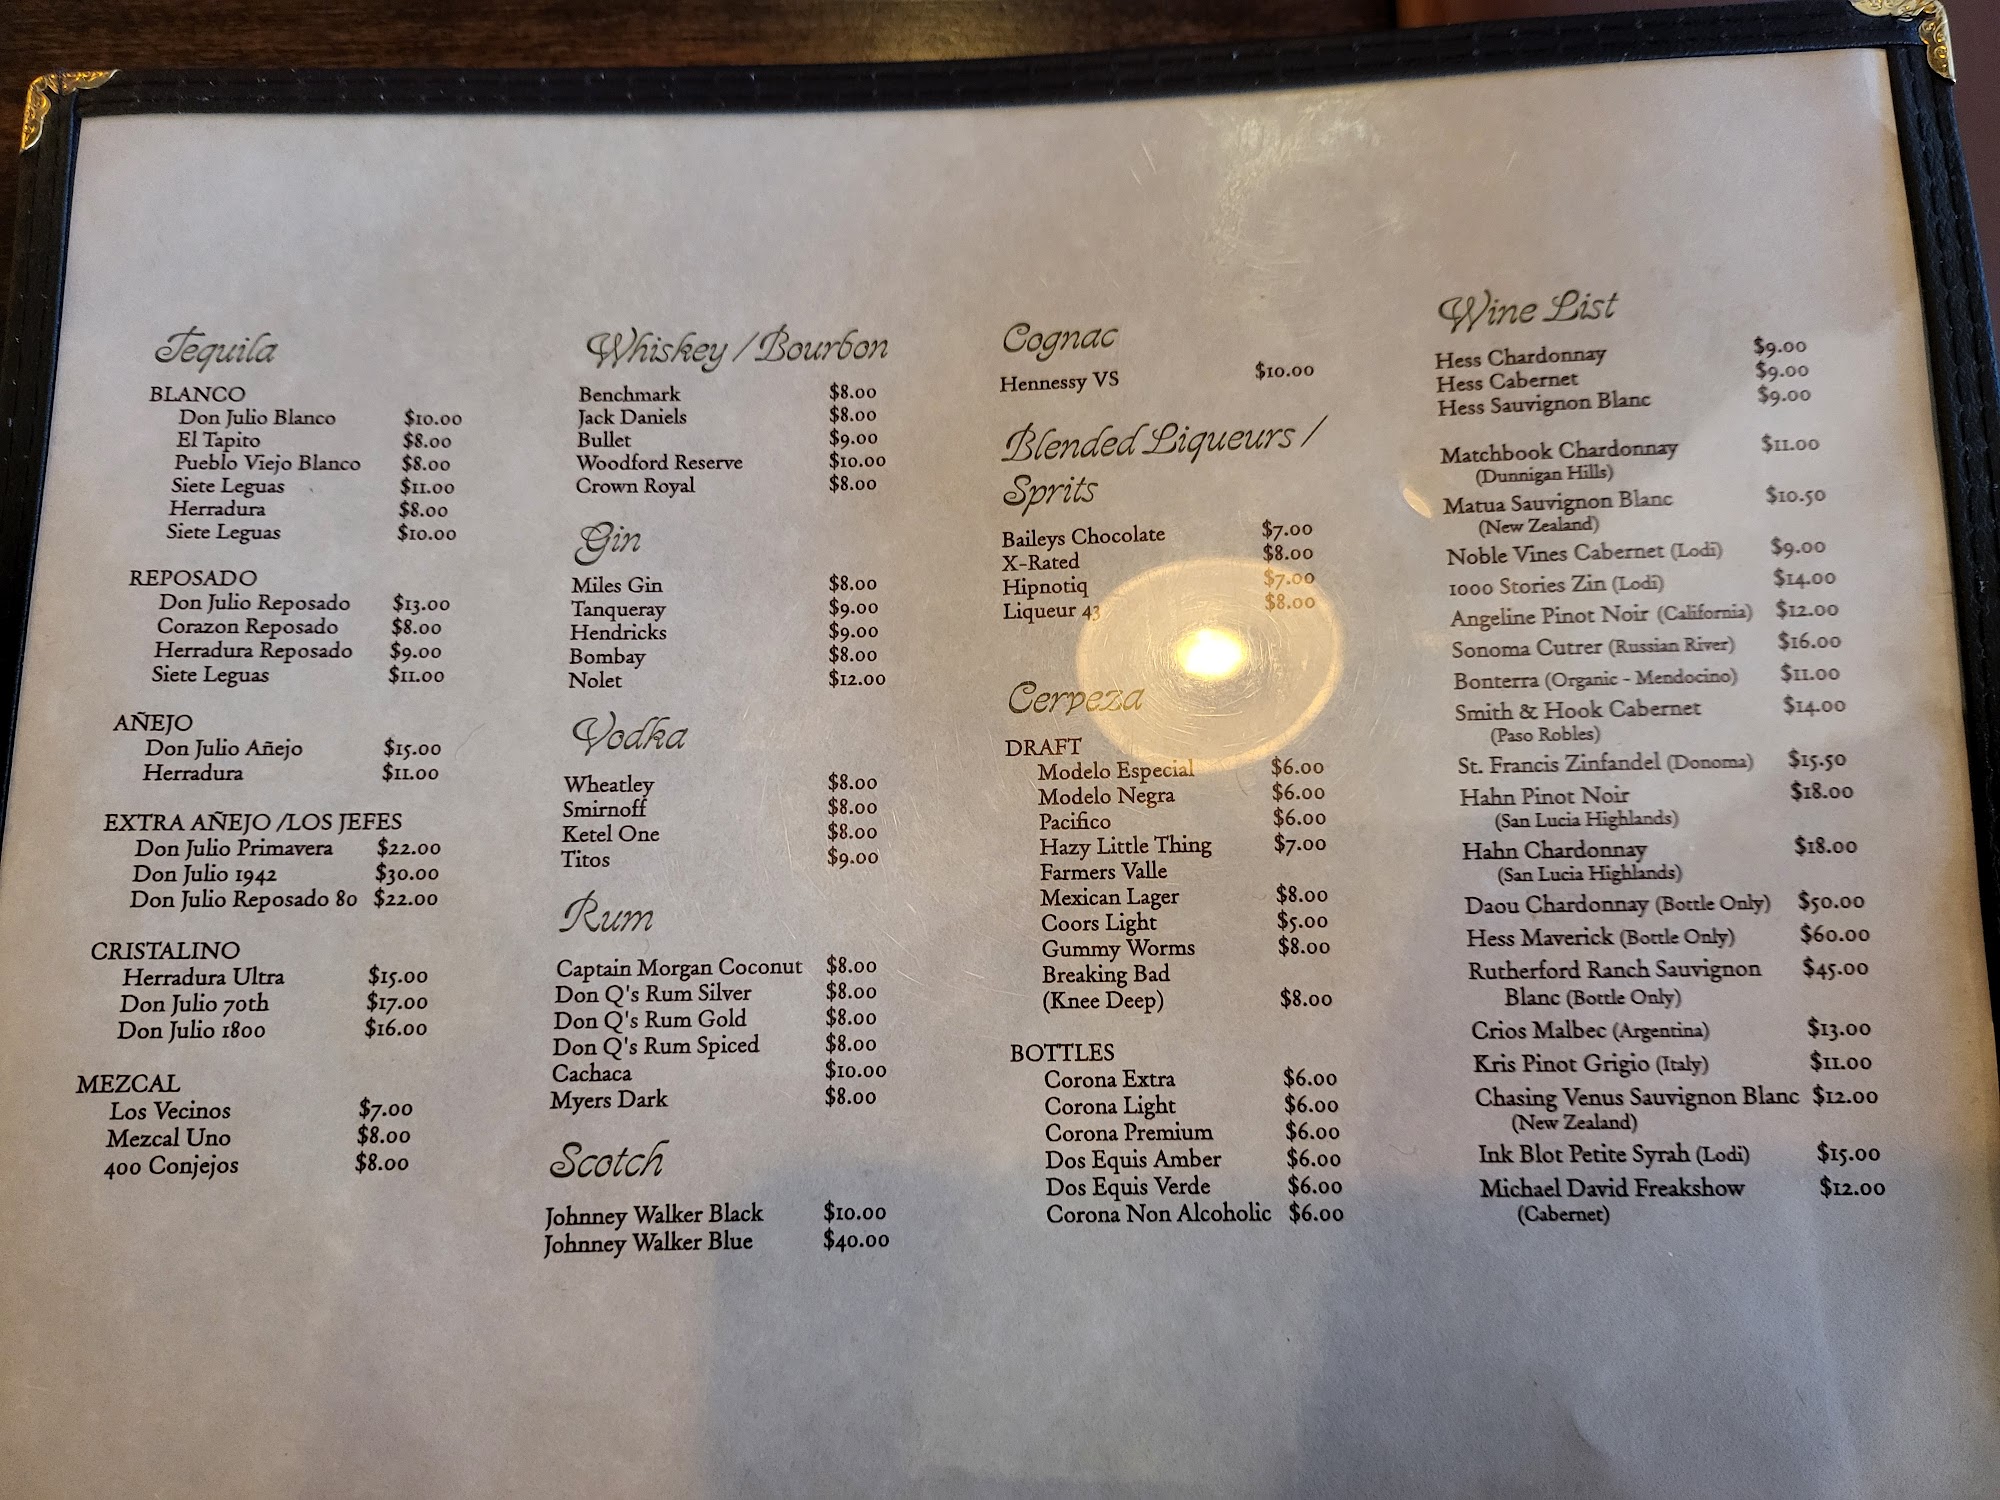 Tequila
BLANCO
Don Julio Blanco $10.00
El Tapito $8.00
Pueblo Viejo Blanco $8.00
Siete Leguas $11.00
Herradura $8.00
Siete Leguas $10.00
REPOSADO
Don Julio Reposado $13.00
Corazon Reposado $8.00
Herradura Reposado $9.00
Siete Leguas $11.00
AÑEJO
Don Julio Añejo $15.00
Herradura $11.00
EXTRA AÑEJO /LOS JEFES
Don Julio Primavera $22.00
Don Julio 1942 $30.00
Don Julio Reposado 80 $22.00
CRISTALINO
Herradura Ultra $15.00
Don Julio 70th $17.00
Don Julio 1800 $16.00
MEZCAL
Los Vecinos $7.00
Mezcal Uno $8.00
400 Conjejos $8.00
Whiskey / Bourbon
Benchmark $8.00
Jack Daniels $8.00
Bullet $9.00
Woodford Reserve $10.00
Crown Royal $8.00
Gin
Miles Gin $8.00
Tanqueray $9.00
Hendricks $9.00
Bombay $8.00
Nolet $12.00
Vodka
Wheatley $8.00
Smirnoff $8.00
Ketel One $8.00
Titos $9.00
Rum
Captain Morgan Coconut $8.00
Don Q's Rum Silver $8.00
Don Q's Rum Gold $8.00
Don Q's Rum Spiced $8.00
Cachaca $10.00
Myers Dark $8.00
Scotch
Johnney Walker Black $10.00
Johnney Walker Blue $40.00
Cognac
Hennessy VS $10.00
Blended Liqueurs /
Sprits
Baileys Chocolate $7.00
X-Rated $8.00
Hipnotiq $7.00
Liqueur 43 $8.00
Cerpeza
DRAFT
Modelo Especial $6.00
Modelo Negra $6.00
Pacifico $6.00
Hazy Little Thing $7.00
Farmers Valle
Mexican Lager $8.00
Coors Light $5.00
Gummy Worms $8.00
Breaking Bad
(Knee Deep) $8.00
BOTTLES
Corona Extra $6.00
Corona Light $6.00
Corona Premium $6.00
Dos Equis Amber $6.00
Dos Equis Verde $6.00
Corona Non Alcoholic $6.00
Wine List
Hess Chardonnay $9.00
Hess Cabernet $9.00
Hess Sauvignon Blanc $9.00
Matchbook Chardonnay $11.00
(Dunnigan Hills)
Matua Sauvignon Blanc $10.50
(New Zealand)
Noble Vines Cabernet (Lodi) $9.00
1000 Stories Zin (Lodi) $14.00
Angeline Pinot Noir (California) $12.00
Sonoma Cutrer (Russian River) $16.00
Bonterra (Organic - Mendocino) $11.00
Smith & Hook Cabernet $14.00
(Paso Robles)
St. Francis Zinfandel (Donoma) $15.50
Hahn Pinot Noir $18.00
(San Lucia Highlands)
Hahn Chardonnay $18.00
(San Lucia Highlands)
Daou Chardonnay (Bottle Only) $50.00
Hess Maverick (Bottle Only) $60.00
Rutherford Ranch Sauvignon $45.00
Blanc (Bottle Only)
Crios Malbec (Argentina) $13.00
Kris Pinot Grigio (Italy) $11.00
Chasing Venus Sauvignon Blanc $12.00
(New Zealand)
Ink Blot Petite Syrah (Lodi) $15.00
Michael David Freakshow $12.00
(Cabernet)